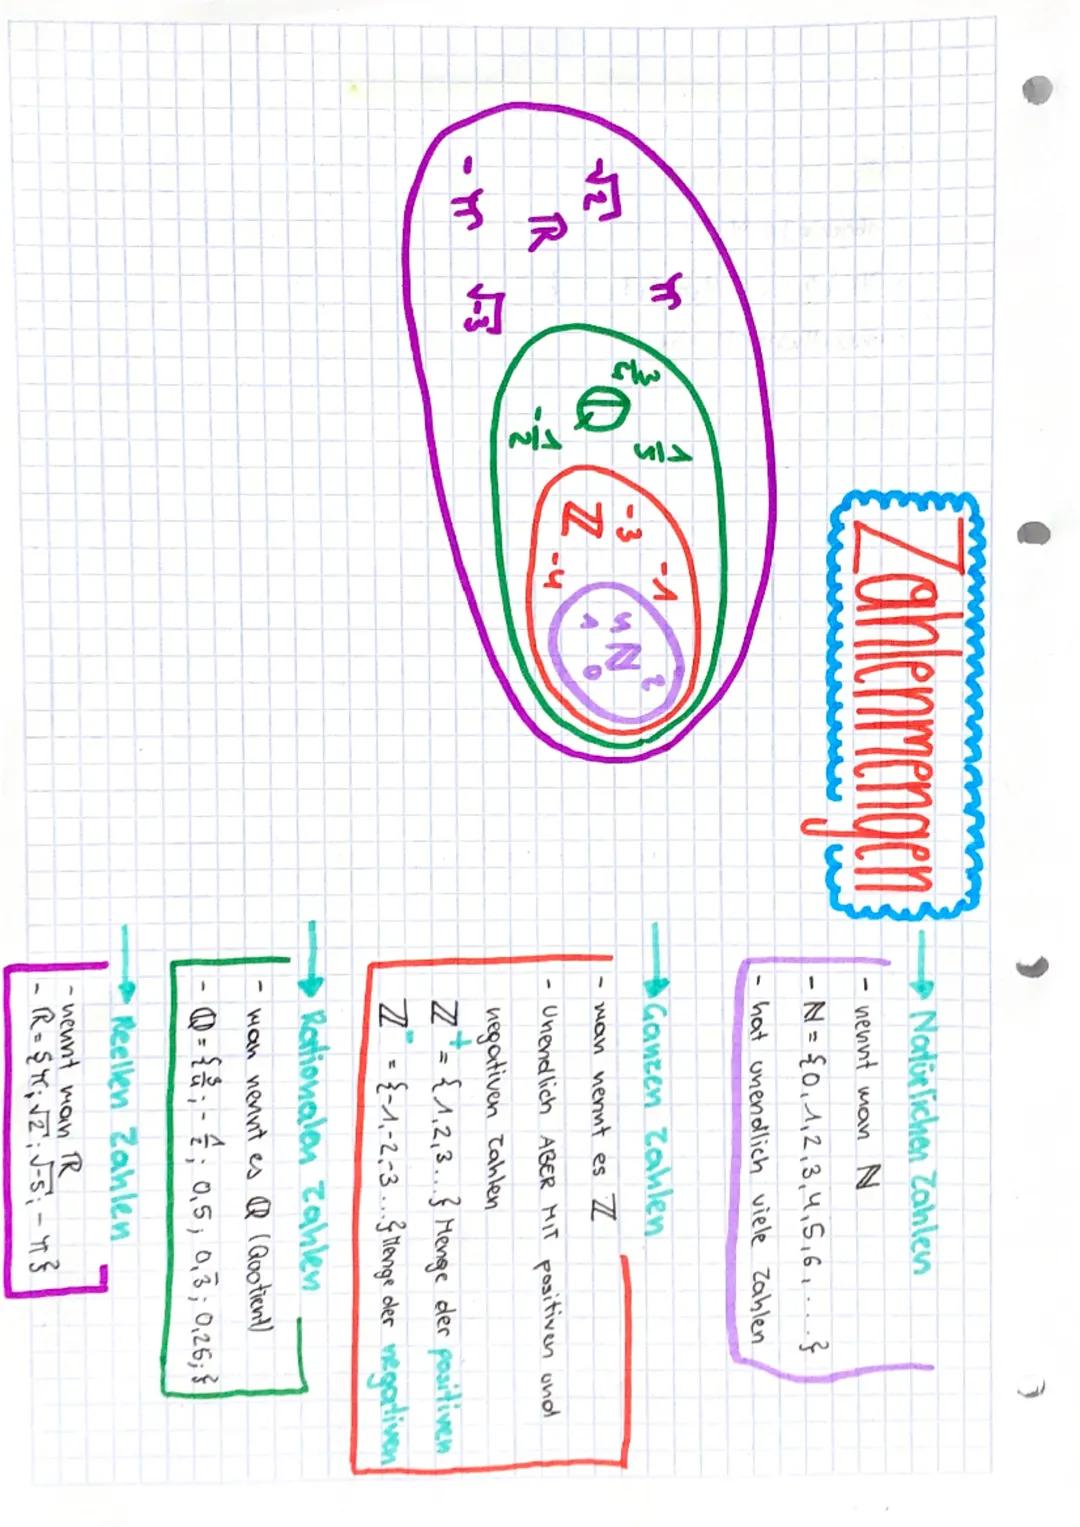 Zahlenmengen
-√2
π
ℝ
-π
√-3
3/4
ℚ
1/5
-1/2
-3
-1
ℤ
-4
4
2
ℕ
1
0
→ Natürlichen Zahlen
- nennt man ℕ
- ℕ = {0,1,2,3,4,5,6,....}
- hat unendlich viele Zahlen
→ Ganzen Zahlen
- man nennt es ℤ
- unendlich ABER MIT positiven und
negativen Zahlen
ℤ⁺ = {1,2,3...} Menge der positiven
ℤ⁻ = {-1,-2,-3...} Menge der negativen
→ Rationalen Zahlen
- man nennt es ℚ (Quotient)
- ℚ = {3/4; -1/2; 0,5; 0,3̅; 0,26;}
→ Reellen Zahlen
- nennt man ℝ
- ℝ = {π; √2; √-5; -π}